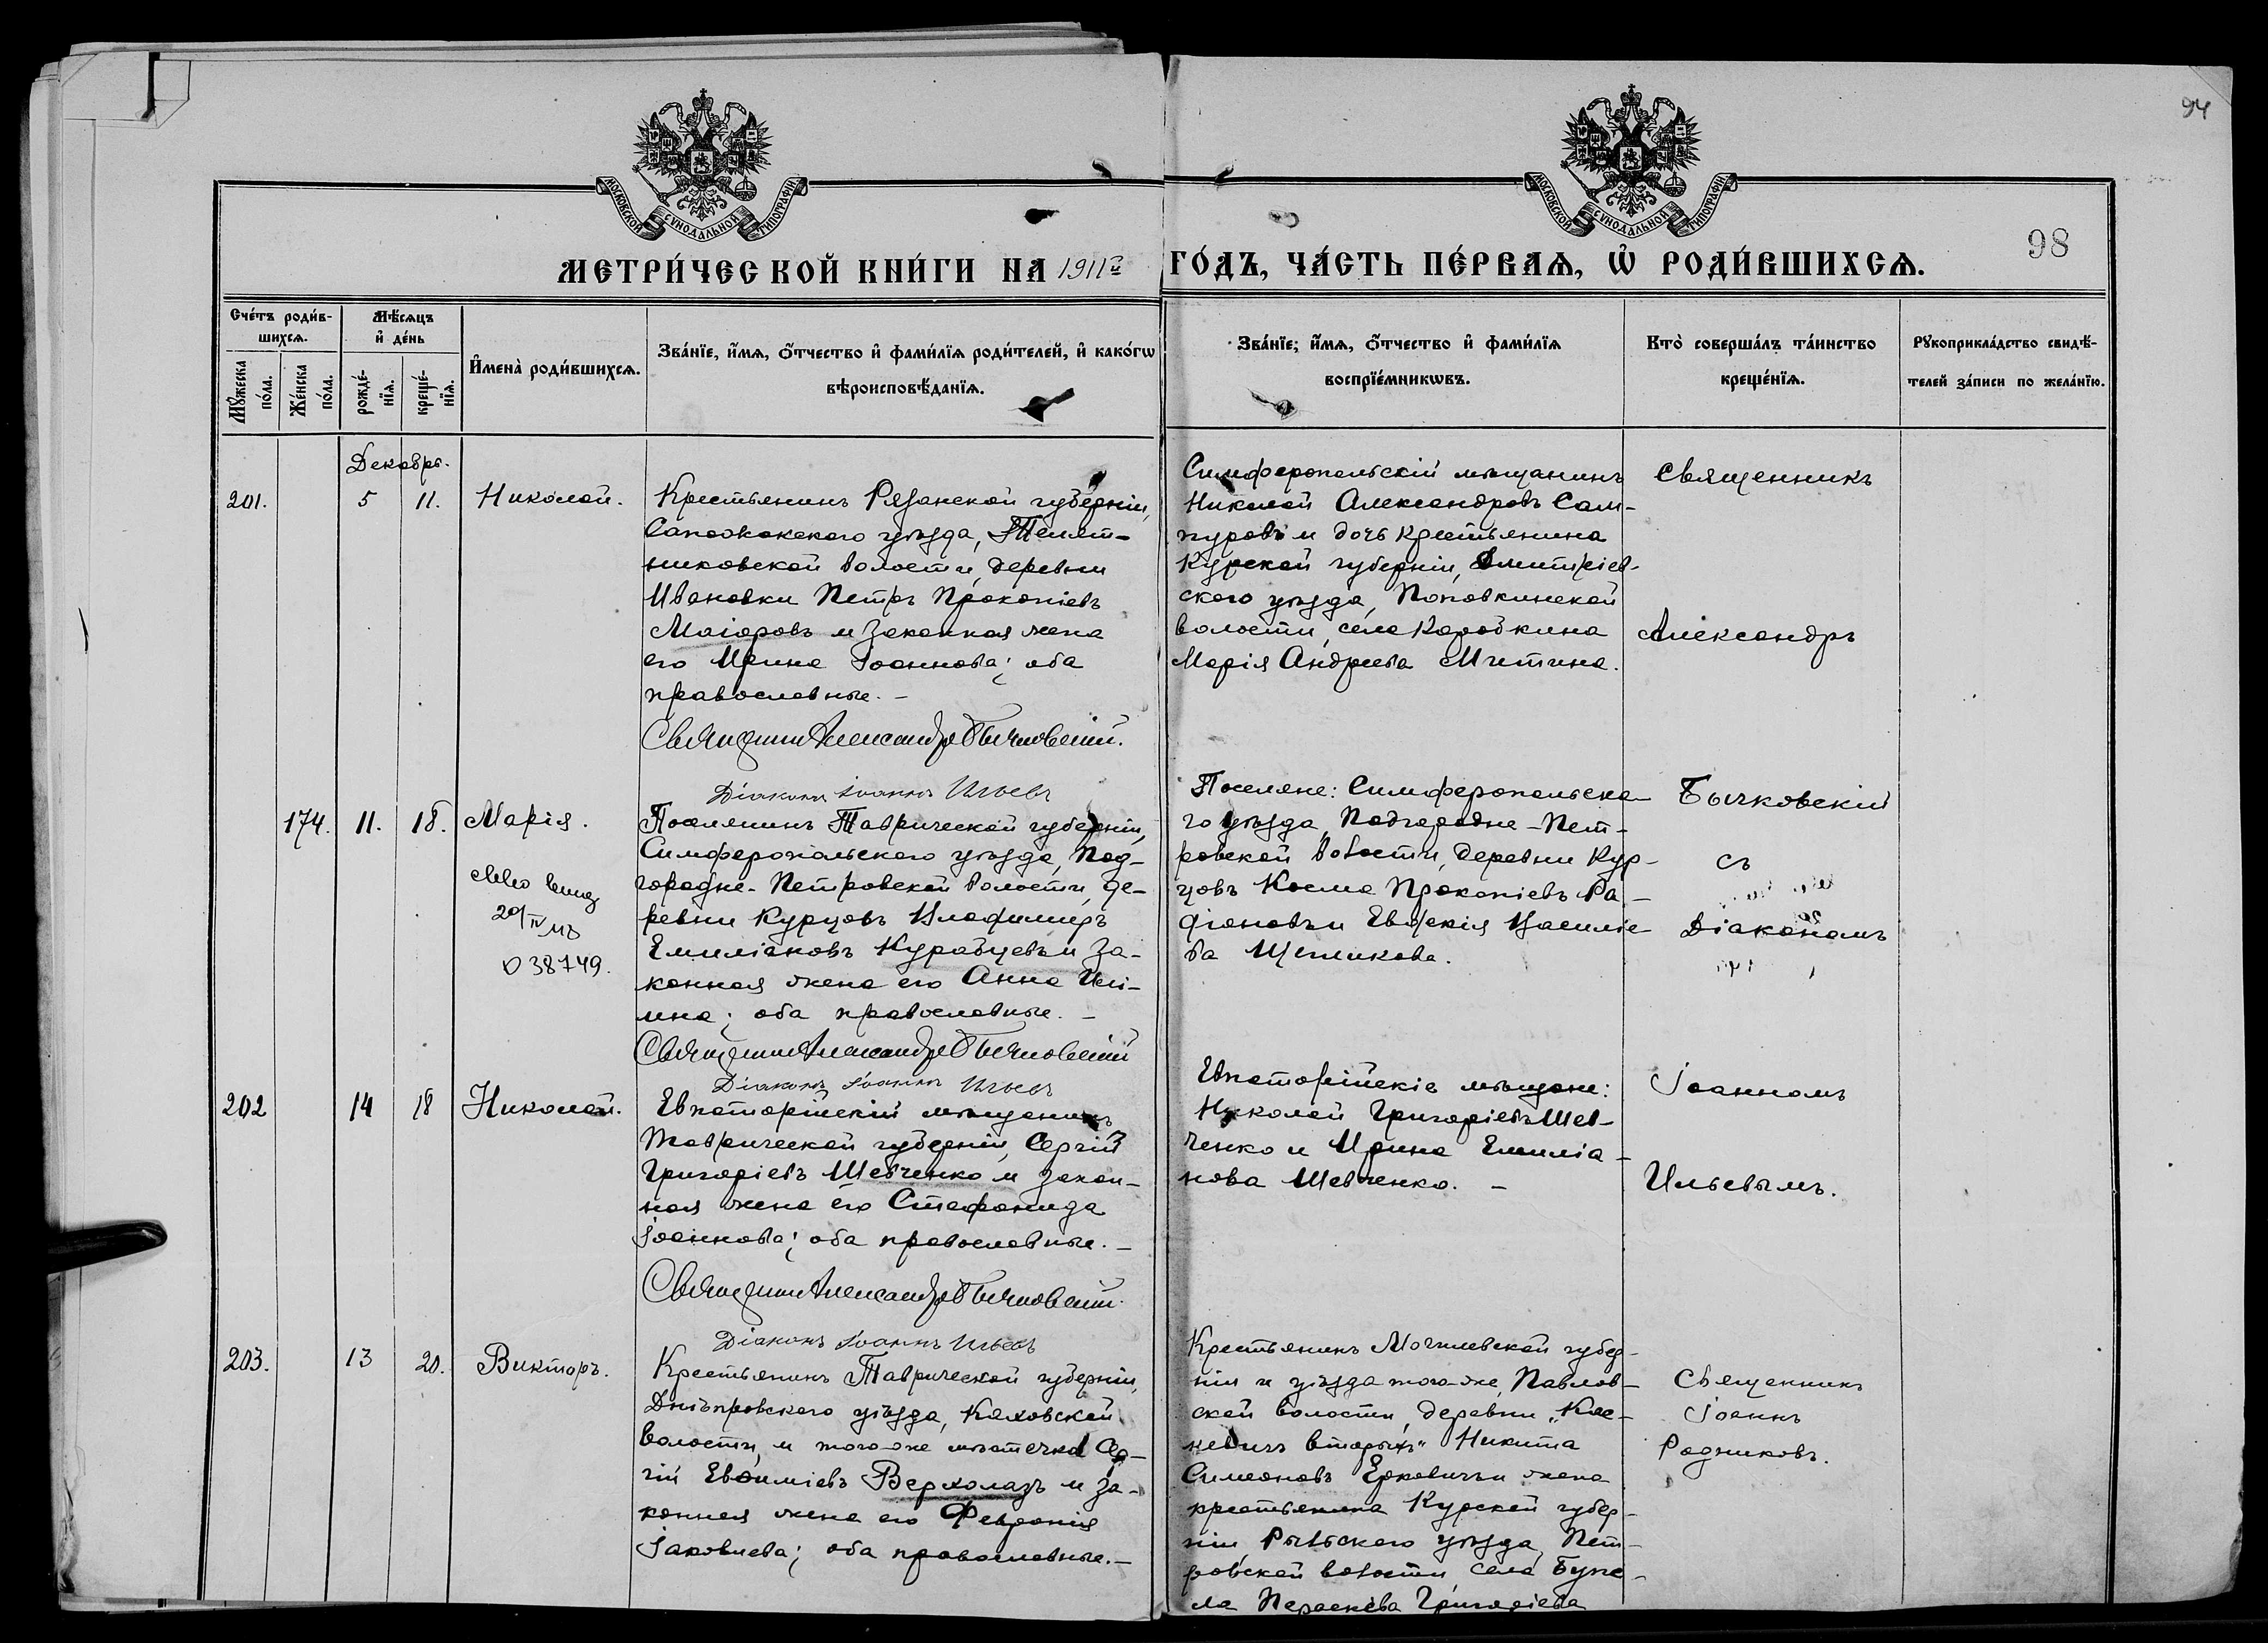 94
98
МОСКОВСКОЙ СѴНОДАЛЬНОЙ ТИПОГРАФІИ
МОСКОВСКОЙ СѴНОДАЛЬНОЙ ТИПОГРАФІИ
МЕТРИ́ЧЕСКОЙ КНИ́ГИ НА 1911й ГО́ДЪ, ЧА́СТЬ ПЕ́РВАЯ, Ѡ РОДИ́ВШИХСЯ.
Сче́тъ роди́в-
шихся.
Мѣ́сяцъ
и де́нь
Мꙋ́жеска
по́ла.
Же́нска
по́ла.
рожде́-
нїя.
креще́-
нїя.
И҆мена̀ роди́вшихся.
Зва́нїе, и҆́мя, ѻ҆́тчество и҆ фами́лїя роди́телей, и҆ како́гѡ
вѣроисповѣ́данїя.
Зва́нїе, и҆́мя, ѻ҆́тчество и҆ фами́лїя
воспрїе́мникѡвъ.
Кто̀ соверша́лъ та́инство
креще́нїя.
Рꙋкоприкла́дство свидѣ́-
телей за́писи по жела́нїю.
Декабрь.
201. 5 11. Николай.
Крестьянинъ Рязанской губерніи,
Сапожокского уѣзда, Телят-
никовской волости, деревни
Ивановки Петръ Прокопіевъ
Маіоровъ и законная жена
его Ирина Іоаннова; оба
православные. –
Священникъ Александръ Бычковскій.
Діаконъ Іоаннъ Ильевъ
Симферопольскій мѣщанинъ
Николай Александровъ Сам-
пуровъ и дочь крестьянина
Курской губерніи, Дмитріев-
ского уѣзда, Поповкинской
волости, села Коробкина
Марія Андреева Митина.
Священникъ
Александръ
174. 11. 18. Марія.
20/IV
38749.
Поселянинъ Таврической губерніи,
Симферопольского уѣзда, Под-
городне-Петровской волости, де-
ревни Курцовъ Владимиръ
Емиліановъ Курабцевъ и за-
конная жена его Анна Илі-
ина; оба православные. –
Священникъ Александръ Бычковскій
Діаконъ Іоаннъ Ильевъ
Поселяне: Симферопольска-
го уѣзда, Подгородне-Пет-
ровской волости, деревни Кур-
цовъ Косма Прокопіевъ Ра-
діоновъ и Евдокія Василіе-
ва Щепикова.
Бычковскій
съ
Діакономъ
202 14 18 Николай.
Евпаторійскій мѣщанинъ
Таврической губерніи, Сергій
Григоріевъ Шевченко и закон-
ная жена его Стефанида
Іоаннова; оба православные. –
Священникъ Александръ Бычковскій.
Діаконъ Іоаннъ Ильевъ
Евпаторійскіе мѣщане:
Николай Григоріевъ Шев-
ченко и Ирина Емиліа-
нова Шевченко. –
Іоанномъ
Ильевымъ.
203. 13 20. Викторъ.
Крестьянинъ Таврической губерніи,
Днѣпровского уѣзда, Каховской
волости, и того-же мѣстечка Сер-
гій Евѳиміевъ Верхолазъ и за-
конная жена его Февронія
Іаковлева; оба православные. –
Крестьянинъ Могилевской губер-
ніи и уѣзда того-же, Павлов-
ской волости, деревни
вторыхъ" Никита
Симеоновъ Ерковичъ и жена
крестьянина Курской губер-
ніи Рыльского уѣзда, Пет-
ровской волости села
Параскева Григоріева
Священникъ
Іоаннъ
Родниковъ.